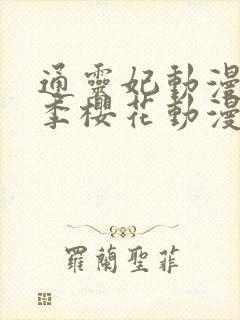 通靈妃動漫
季櫻花動漫
羅蘭聖菲